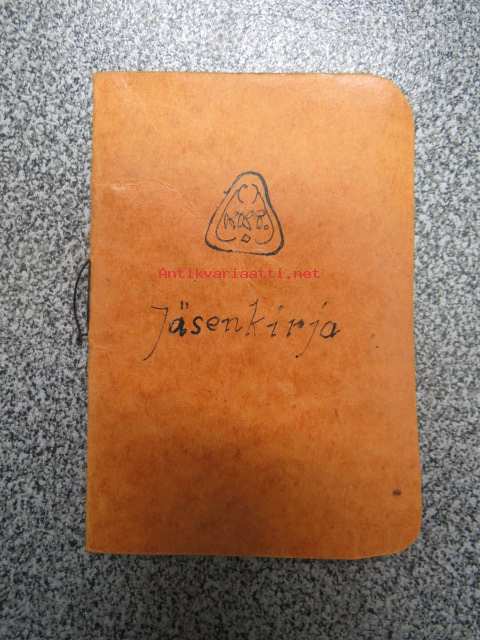 Antikvariaatti.net
Jäsenkirja